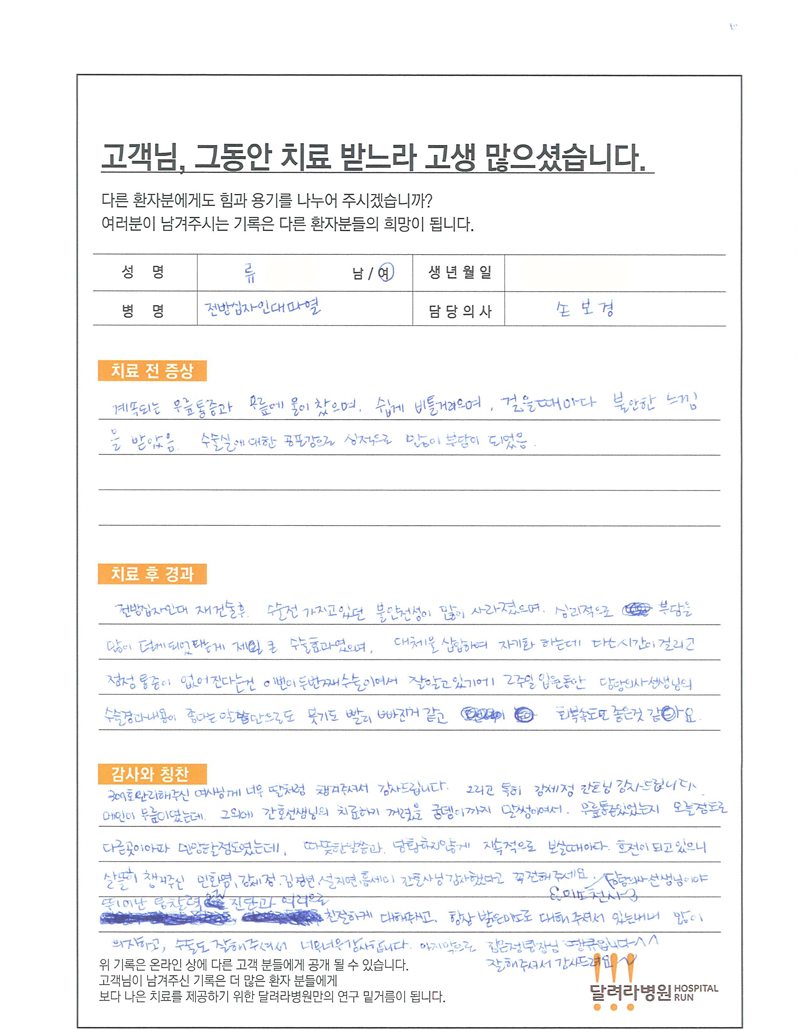 고객님, 그동안 치료 받느라 고생 많으셨습니다.
다른 환자분에게도 힘과 용기를 나누어 주시겠습니까?
여러분이 남겨주시는 기록은 다른 환자분들의 희망이 됩니다.
성 명 류 남 / 여 생년월일
병 명 전방십자인대파열 담당의사 손보경
치료 전 증상
계속되는 무릎통증과 무릎에 물이 찼으며, 쉽게 비틀거리으며, 걸을때마다 불안한 느낌
을 받았음. 수술실에 대한 공포감으로 심적으로 많이 부담이 되었음.
치료 후 경과
전방십자인대 재건술후 수술전 가지고있던 불안전성이 많이 사라졌으며. 심리적으로 부담을
많이 덜게되었다는게 제일 큰 수술효과였으며, 대체물 삽입하여 자기화 하는데 다는시간이걸리고
점점 통증이 없어진다는건 이번이두번째수술이여서 잘알고있기에 2주일 입원동안 담당의사선생님의
수술경과내용이 좋다는 말씀만으로도 붓기도 빨리 빠진거 같고 회복속도도 좋은것 같아요.
감사와 칭찬
관리해주신 여사님께 너무 딸처럼 챙겨주셔서 감사드립니다. 그리고 특히 강제정 간호사님 감사드립니다.
메인이 무릎이였는데. 그외에 간호선생님의 치료하기 꺼렸을 궁뎅이까지 말썽이여서. 무릎통증있었는지 오늘점도로
다른곳이아파 민망할정도였는데, 따뜻한말씀과. 지속적으로 보살때마다. 호전이 되고있으니
살뜰히 챙겨주신 민희영, 강제정, 김정년, 설지연, 홍세디 간호사님 감사했다고 꼭전해주세요. 담당의사선생님이야
뛰어난 통찰력 진단과 여러으로
친절하게 대해주고, 항상 밝은미소로 대해주셔서 있는내내 많이
의지하고, 수술도 잘해주셔서 너무너무감사합니다. 마지막으로
잘해주셔서 감사드려요
위 기록은 온라인 상에 다른 고객 분들에게 공개 될 수 있습니다.
고객님이 남겨주신 기록은 더 많은 환자 분들에게
보다 나은 치료를 제공하기 위한 달려라병원만의 연구 밑거름이 됩니다.
달려라병원 HOSPITAL RUN